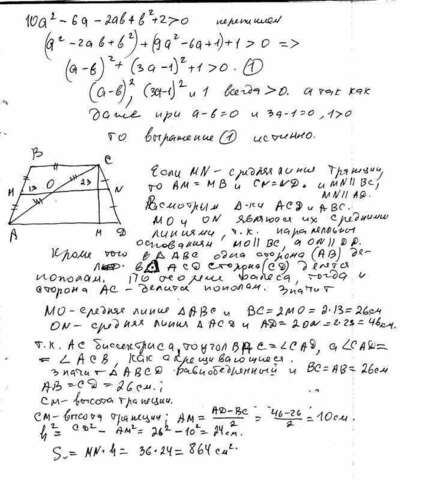 10a² - 6a - 2ab + b² + 2 > 0 перепишем
(a² - 2ab + b²) + (9a² - 6a + 1) + 1 > 0 =>
(a - b)² + (3a - 1)² + 1 > 0. (1)
(a - b)², (3a - 1)² и 1 всегда > 0. а так как
даже при a - b = 0 и 3a - 1 = 0, 1 > 0
то выражение (1) истинно.
B C
M 13 O 23 N
A M D
Если MN - средняя линия трапеции,
то AM = MB и CN = ND. и MN || BC,
MN || AD.
Рассмотрим Δ-ки ACD и ABC.
MO и ON являются их средними
линиями, т.к. параллельны
основаниям MO || BC, а ON || AD.
Кроме того в ΔABC одна сторона (AB) де-
в Δ ACD сторона (CD) делится
пополам. По теореме Фалеса, тогда и
сторона AC - делится пополам. Значит
MO - средняя линия ΔABC и BC = 2MO = 2·13 = 26см
ON - средняя линия ΔACD и AD = 2ON = 2·23 = 46см.
т.к. AC биссектриса, то угол BAC = ∠CAD, а ∠CAD =
= ∠ACB, как скрещивающиеся.
значит ΔABCD равнобедренный и BC = AB = 26см
AB = CD = 26см.;
CM - высота трапеции.
CM - высота трапеции; AM = (AD - BC)/2 = (46 - 26)/2 = 10см.
h² = CD² - AM² = 26² - 10² = 24см.
S = MN · h = 36·24 = 864 см².